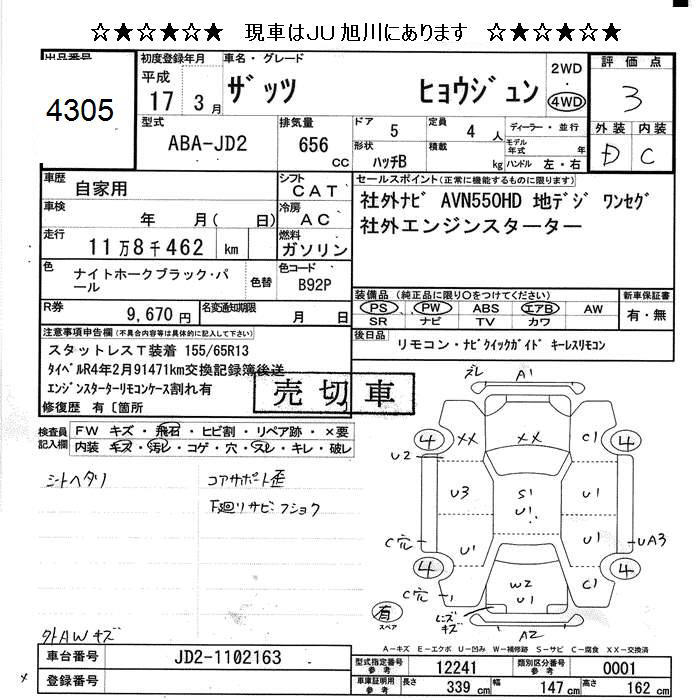 ☆★☆★☆★ 現車はJU旭川にあります ☆★☆★☆★
出品番号
4305
初度登録年月
平成
17 3月
車名・グレード
ザッツ ヒョウジュン
2WD
・
4WD
評価点
3
外装 内装
D C
型式
ABA-JD2
排気量
656 cc
ドア
5
定員
4 人
ディーラー・並行
形状
ハッチB
積載
kg
モデル年式 年
ハンドル 左・右
車歴
自家用
シフト
CAT
車検
年 月( 日)
冷房
AC
走行
11万8千462 km
燃料
ガソリン
色
ナイトホークブラック・パール
色替
色コード
B92P
R券
9,670円
名変通知期限
月 日
セールスポイント(正常に機能するものに限ります)
社外ナビ AVN550HD 地デジ ワンセグ
社外エンジンスターター
装備品 (純正品に限り○をつけてください)
PS PW ABS エアB AW
SR ナビ TV カワ
新車保証書
有・無
後日品
リモコン・ナビクイックガイド キーレスリモコン
注意事項申告欄(不具合内容等は具体的に記入して下さい)
スタットレスT装着 155/65R13
タイベルR4年2月91471km交換記録簿後送
エンジンスターターリモコンケース割れ有
修復歴 有〔箇所
売切車
検査員記入欄
FW キズ・飛石・ヒビ割・リペア跡・×要
内装 キズ・汚レ・コゲ・穴・スレ・キレ・破レ
シートヘタリ
コアサポート歪
下廻リサビ フショク
外AWキズ
ズレ A1
4 XX XX C1 4
U2
U3 S1 U1 U1
C穴 U1 U1 UA3
4 4
C穴 1 W2 U1 C1
レンズキズ
A2
有
スペア
A-キズ E-エクボ U-凹み W-補修跡 S-サビ C-腐食 XX-交換済
車台番号
JD2-1102163
登録番号
型式指定番号
参考
12241
類別区分番号
参考
0001
車車証明用
参考
長さ 339 cm
幅 147 cm
高さ 162 cm